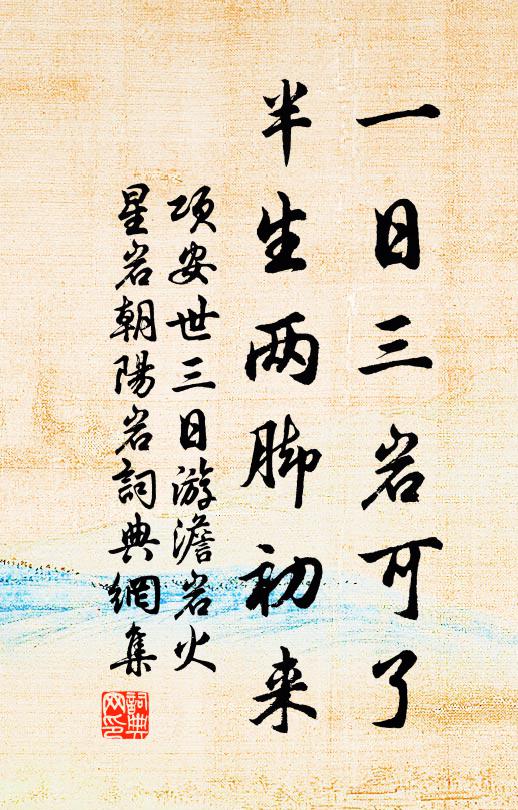 一日三岩可了
半生两脚初来
项安世三日游澹岩火
星岩朝陽岩詞典網集
詞典網印